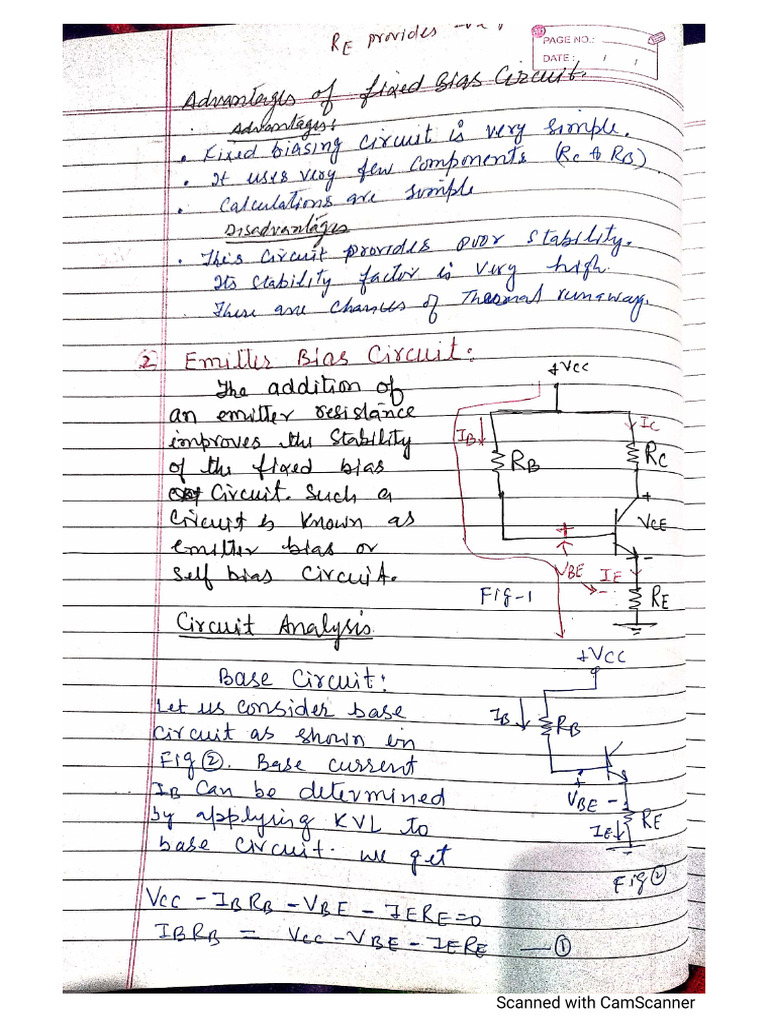 RE provides -ve
PAGE NO.:
DATE: / /
Advantages of fixed Bias Circuit.
Advantages:
• Fixed biasing circuit is very simple.
• It uses very few components (RC & RB).
• Calculations are simple
Disadvantages
• This circuit provides poor stability.
Its stability factor is very high.
There are chances of Thermal runaway.
② Emitter Bias Circuit:
The addition of
an emitter resistance
improves the stability
of the fixed bias
Circuit. Such a
Circuit is known as
emitter bias or
self bias circuit.
+VCC
IB
RB
IC
RC
+
VCE
+
-
VBE
-
IE
RE
Fig-1
Circuit Analysis
Base Circuit:
Let us consider base
circuit as shown in
Fig ②. Base current
IB can be determined
by applying KVL to
base circuit. we get
+VCC
IB
RB
+
VBE -
IE
RE
Fig ②
VCC - IBRB - VBE - IERE = 0
IBRB = VCC - VBE - IERE — ①
Scanned with CamScanner